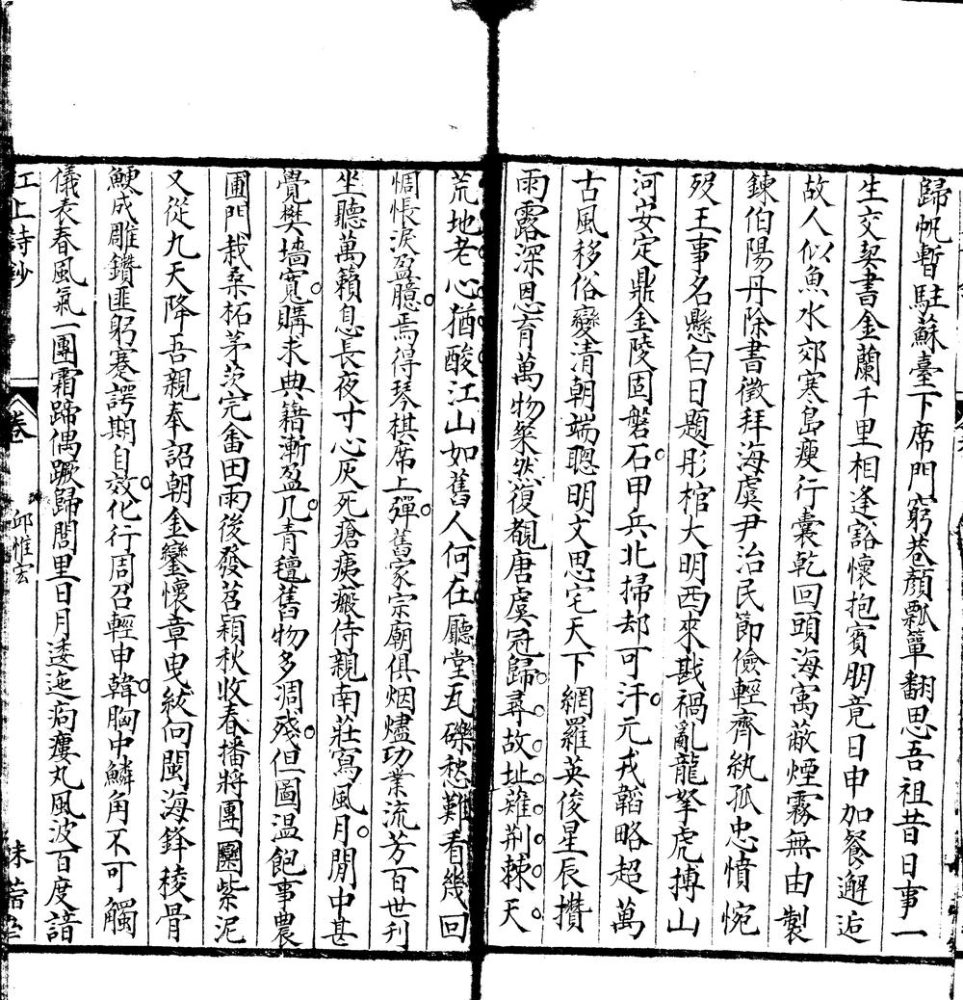 歸帆暫駐蘇臺下席門窮巷顏瓢簞翻思吾祖昔日事一
生交契書金蘭千里相逢豁懷抱賓朋竟日申加餐邂逅
故人似魚水郊寒島瘦行囊乾回頭海寓蔽煙霧無由製
鍊伯陽丹除書徵拜海虞尹治民節儉輕齊紈孤忠憤惋
歿王事名懸白日題彤棺大明西來戡禍亂龍拏虎搏山
河安定鼎金陵固磐石甲兵北掃却可汗元戎韜略超萬
古風移俗變清朝端聰明文思宅天下網羅英俊星辰攢
雨露深恩育萬物粲然復覩唐虞冠歸尋故址薙荆棘天
荒地老心猶酸江山如舊人何在廳堂瓦礫愁難看幾回
惆悵淚盈臆焉得琴棋席上彈舊家宗廟俱烟燼功業流芳百世刋
坐聽萬籟息長夜寸心灰死瘡痍瘢侍親南莊寫風月閒中甚
覺樊墻寬購求典籍漸盈几青氊舊物多凋殘但圖温飽事農
圃門栽桑柘茅茨完畬田雨後發苕穎秋收春播將團圞紫泥
又從九天降吾親奉詔朝金鑾懷章曳紱向閩海鋒稜骨
鯁成雕鑽匪躬蹇諤期自效化行周召輕申韓胸中鱗角不可觸
儀表春風氣一團霜蹄偶蹶歸閭里日月逶迤痀瘻丸風波百度諳
江上詩鈔
卷
邱惟宏